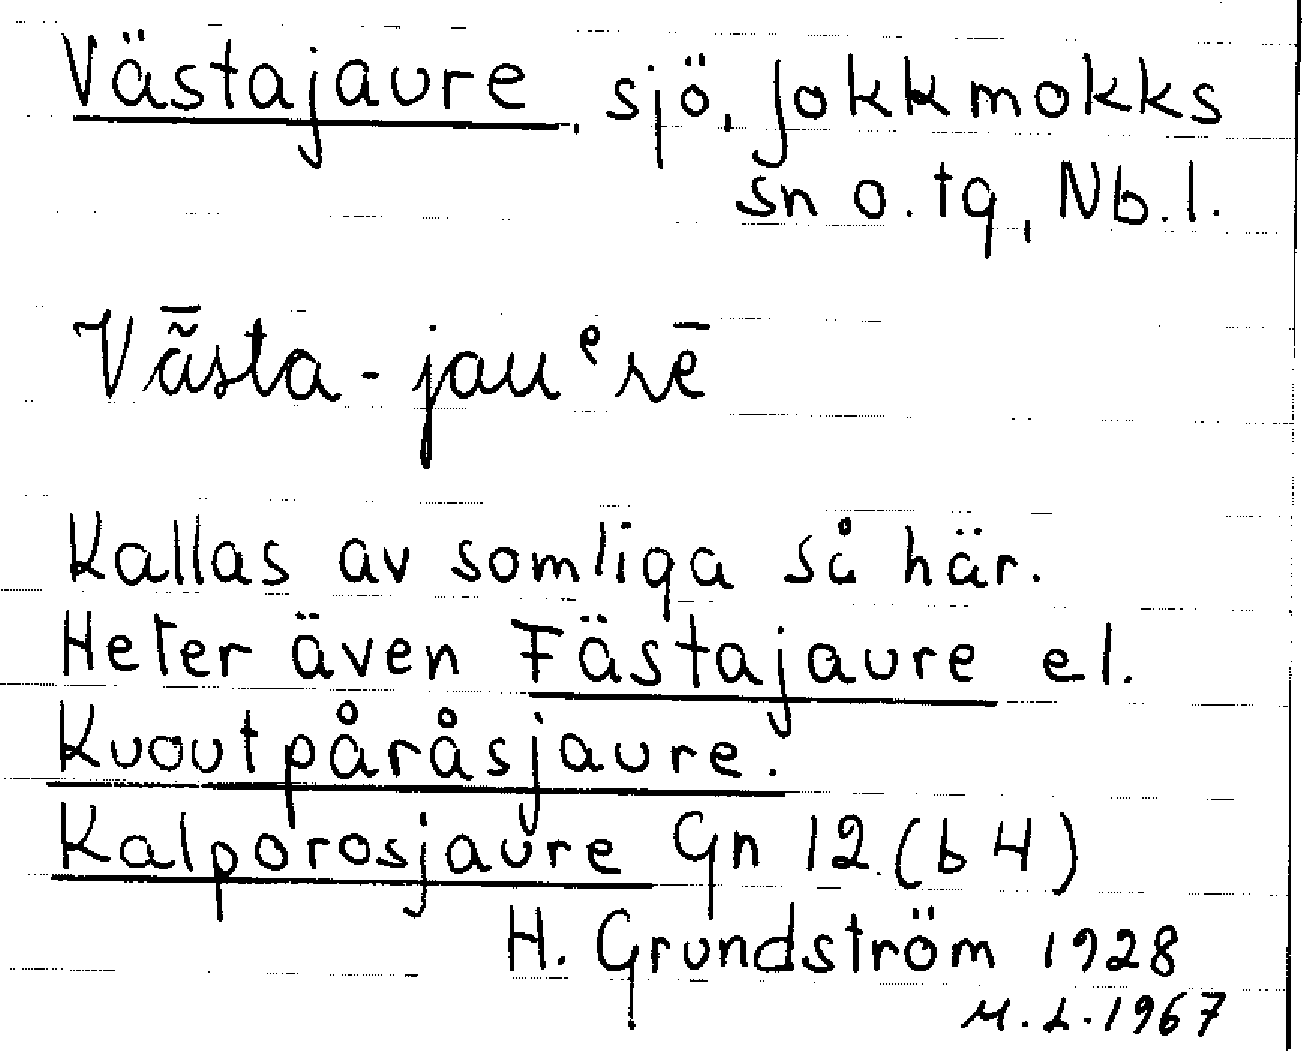 Västajaure, sjö, Jokkmokks
sn o. tg, Nb. l.
Vä̃̄sta-jauᵉrē
Kallas av somliga så här.
Heter även Fästajaure el.
Kuoutpåråsjaure.
Kalporosjaure Gn 12 (b 4)
H. Grundström 1928
M. L. 1967